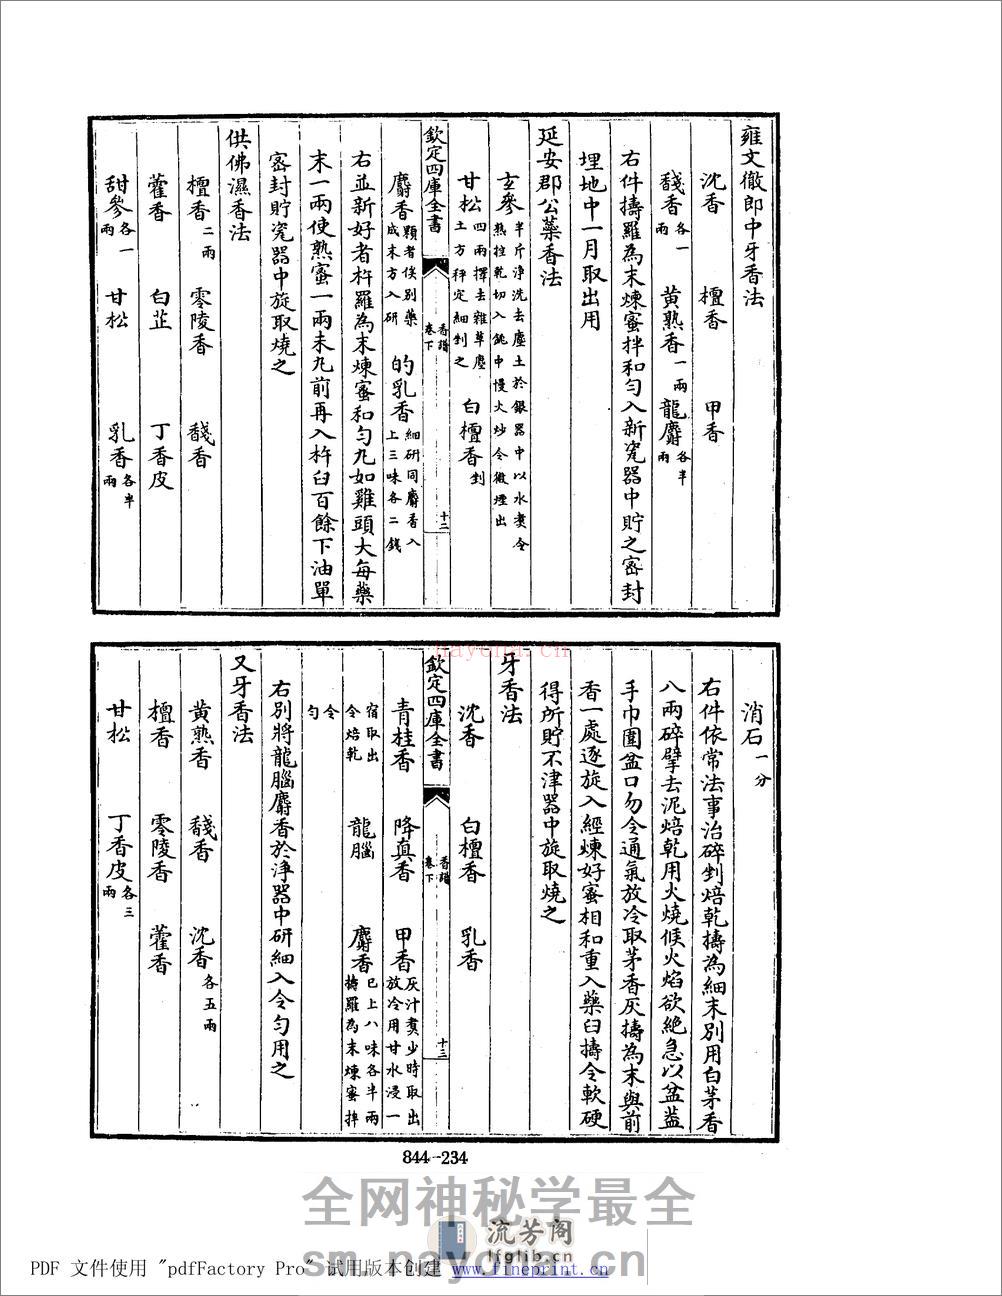 雍文徹郎中牙香法
沈香 檀香 甲香
馢香各一兩 黄熟香一兩 龍麝各半兩
右件擣羅為末煉蜜拌和勻入新瓷器中貯之密封
埋地中一月取出用
延安郡公藥香法
玄參半斤淨洗去塵土於銀器中以水煑令
熟控乾切入銚中慢火炒令微煙出
甘松四兩擇去雜草塵土方秤定細剉之 白檀香剉
欽定四庫全書
香譜
卷下
十二
麝香顆者俟别藥成末方入研 的乳香細研同麝香入上三味各二錢
右並新好者杵羅為末煉蜜和勻丸如雞頭大每藥
末一兩使熟蜜一兩未丸前再入杵臼百餘下油單
密封貯瓷器中旋取燒之
供佛濕香法
檀香二兩 零陵香 馢香
藿香 白芷 丁香皮
甜參各一兩 甘松 乳香各半兩
消石一分
右件依常法事治碎剉焙乾擣為細末別用白茅香
八兩碎擘去泥焙乾用火燒候火焰欲絶急以盆蓋
手巾圍盆口勿令通氣放冷取茅香灰擣為末與前
香一處逐旋入經煉好蜜相和重入藥臼擣令軟硬
得所貯不津器中旋取燒之
牙香法
沈香 白檀香 乳香
欽定四庫全書
香譜
卷下
十三
青桂香 降真香 甲香灰汁煑少時取出放冷用甘水浸一
宿取出令焙乾 龍腦 麝香已上八味各半兩擣羅為末煉蜜拌
令勻
右別將龍腦麝香於淨器中研細入令勻用之
又牙香法
黄熟香 馢香 沈香各五兩
檀香 零陵香 藿香
甘松 丁香皮各三兩
844-234
nayona.cn
全网神秘学最全
sm.nayona.cn
流芳阁
lfglib.cn
PDF 文件使用 "pdfFactory Pro" 试用版本创建 www.fineprint.cn